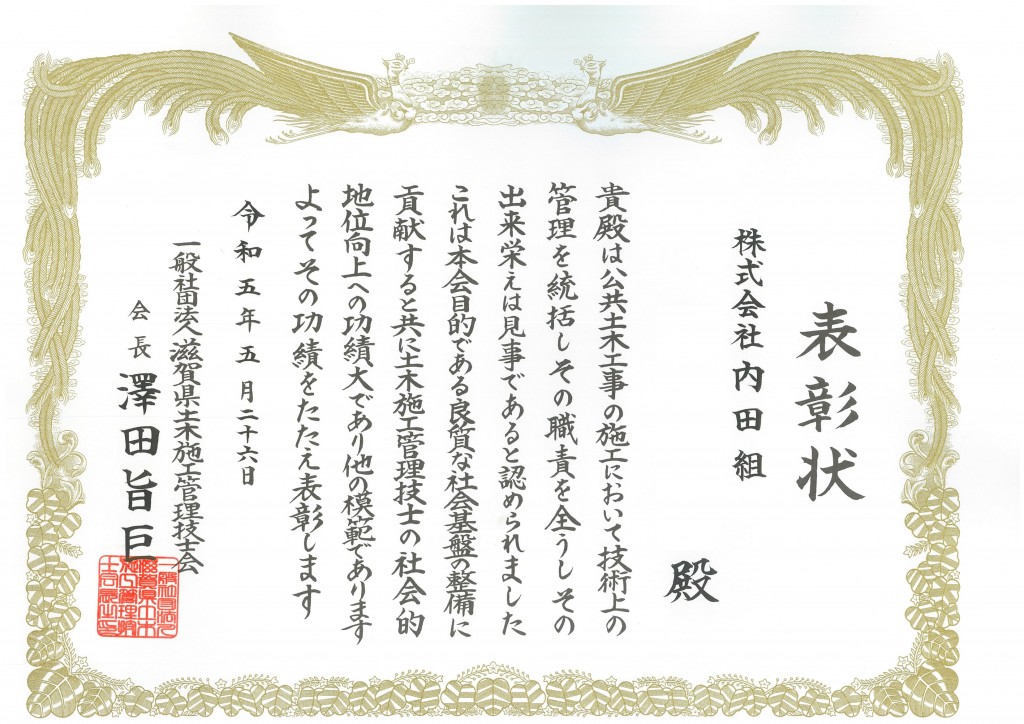 表彰状
株式会社内田組
殿
貴殿は公共土木工事の施工において技術上の
管理を統括しその職責を全うしその
出来栄えは見事であると認められました
これは本会目的である良質な社会基盤の整備に
貢献すると共に土木施工管理技士の社会的
地位向上への功績大であり他の模範であります
よってその功績をたたえ表彰します
令和五年五月二十六日
一般社団法人滋賀県土木施工管理技士会
会長 澤田旨巨